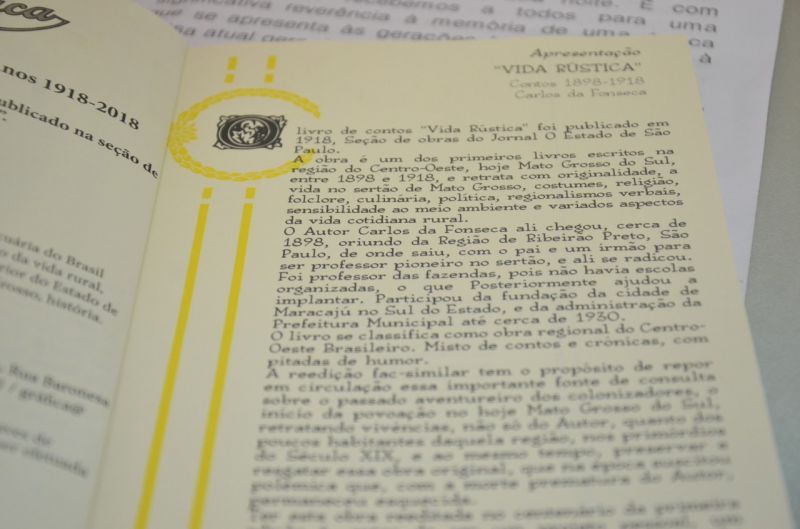 nos 1918-2018
ublicado na seção de
cuária do Brasil
o da vida rural,
rior do Estado de
rosso, história.
Rua Baronesa
/ gráfica@
recebemos a todos para uma
significativa reverência à memória de uma
que se apresenta às gerações
Apresentação
"VIDA RÚSTICA"
Contos 1898-1918
Carlos da Fonseca
O livro de contos "Vida Rústica" foi publicado em
1918, Seção de obras do Jornal O Estado de São
Paulo.
A obra é um dos primeiros livros escritos na
região do Centro-Oeste, hoje Mato Grosso do Sul,
entre 1898 e 1918, e retrata com originalidade, a
vida no sertão de Mato Grosso, costumes, religião,
folclore, culinária, política, regionalismos verbais,
sensibilidade ao meio ambiente e variados aspectos
da vida cotidiana rural.
O Autor Carlos da Fonseca ali chegou, cerca de
1898, oriundo da Região de Ribeirão Preto, São
Paulo, de onde saiu, com o pai e um irmão para
ser professor pioneiro no sertão, e ali se radicou.
Foi professor das fazendas, pois não havia escolas
organizadas, o que Posteriormente ajudou a
implantar. Participou da fundação da cidade de
Maracajú no Sul do Estado, e da administração da
Prefeitura Municipal até cerca de 1930.
O livro se classifica como obra regional do Centro-
Oeste Brasileiro. Misto de contos e crônicas, com
pitadas de humor.
A reedição fac-similar tem o propósito de repor
em circulação essa importante fonte de consulta
sobre o passado aventureiro dos colonizadores, o
início da povoação no hoje Mato Grosso do Sul,
retratando vivências, não só do Autor, quanto dos
poucos habitantes daquela região, nos primórdios
do Século XIX, e ao mesmo tempo, preservar e
resgatar essa obra original, que na época suscitou
polêmica que, com a morte prematura do Autor,
permaneceu esquecida.
Ter esta obra reeditada no centenário da primeira